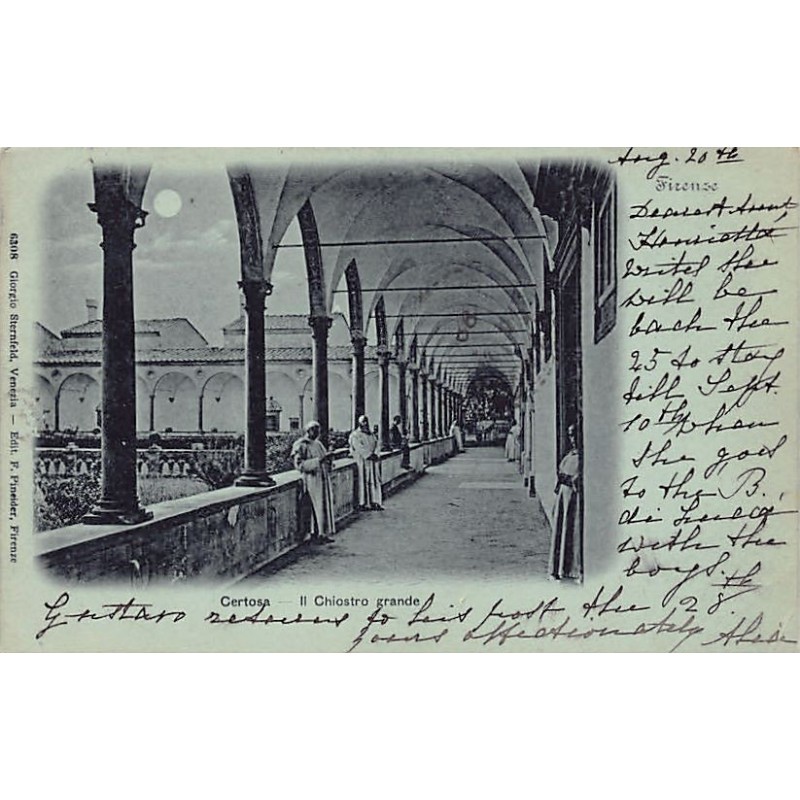 Aug. 20th
Firenze
Dearest Aunt
Henrietta
writes she
will be
back the
25 to stay
till Sept.
10th when
she goes
to the B.
di Lucca
with the
boys.
Certosa — Il Chiostro grande
Gustavo returns to his post the 28th.
yours affectionately
6308 Giorgio Sternfeld, Venezia — Edit. F. Pineider, Firenze